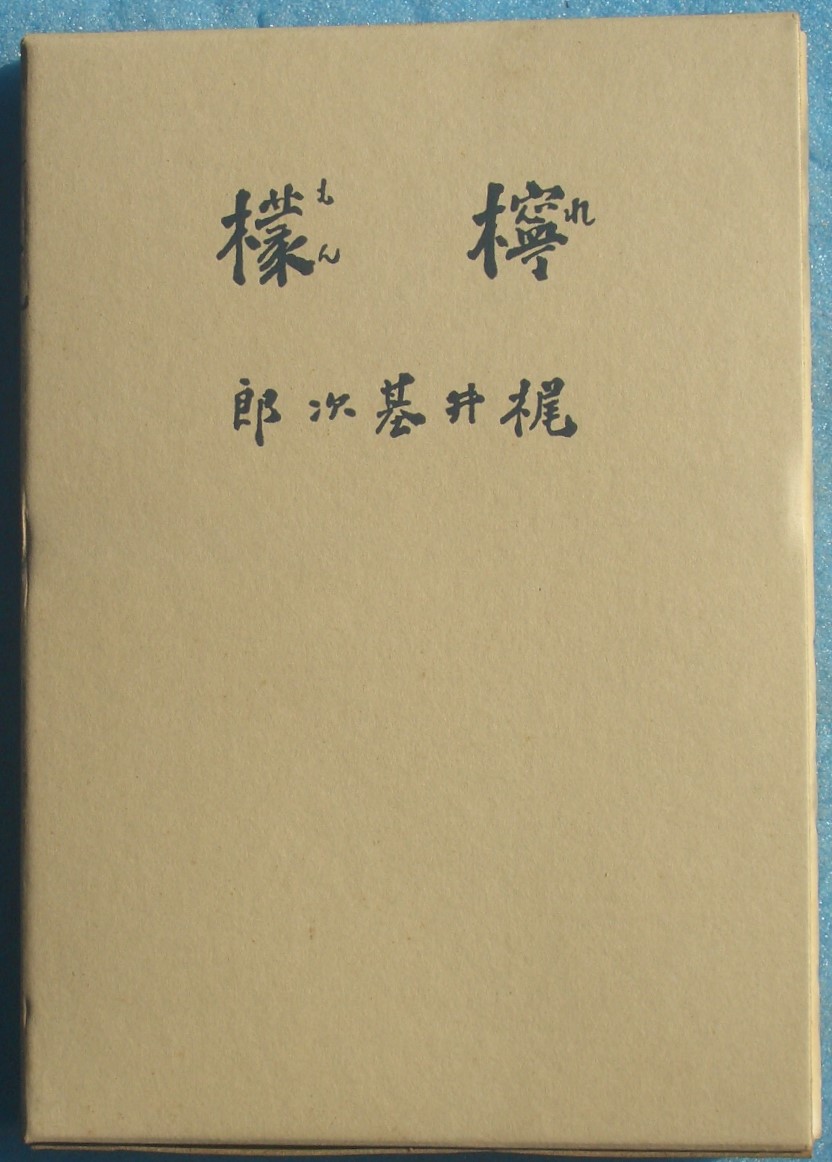 れもん
檸檬
梶井基次郎